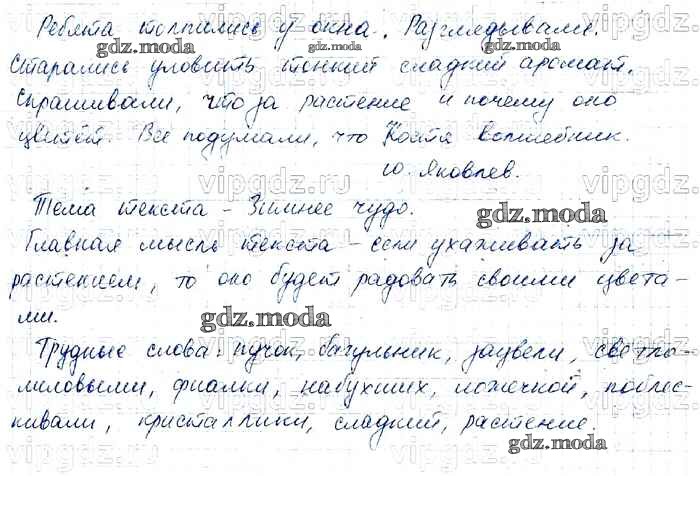 Ребята толпились у окна. Разглядывали.
Старались уловить тонкий сладкий аромат.
Спрашивали, что за растение и почему оно
цветёт. Все подумали, что Костя волшебник.
Ю. Яковлев.
Тема текста - Зимнее чудо.
Главная мысль текста - если ухаживать за
растением, то оно будет радовать своими цвета-
ми.
Трудные слова: пучок, багульник, зацвели, светло-
лиловыми, фиалки, набухших, ложечкой, поблес-
кивали, кристаллики, сладкий, растение.
gdz.moda
gdz.moda
gdz.moda
gdz.moda
gdz.moda
gdz.moda
vipgdz.ru